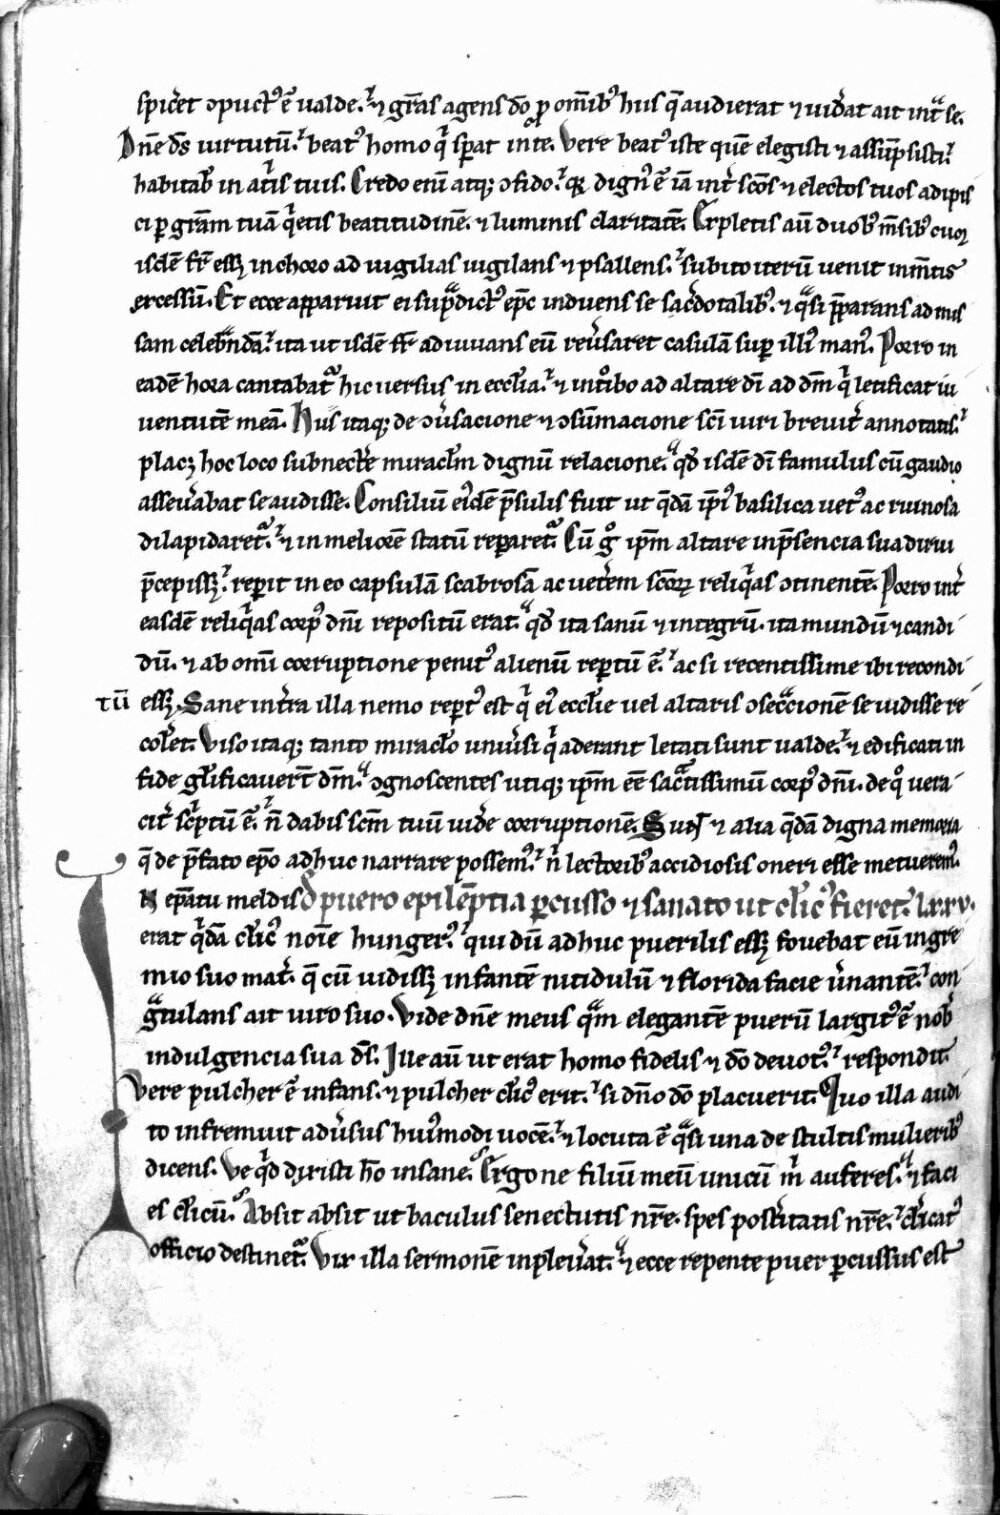 spic̄et ꝯpūct᷒ ē ualde. ⁊ gr̄as agens dō p om̄ib᷒ hiis q̄ audierat ⁊ uid̓at ait int̓ se.
Dn̄e ds̄ uirtutū. beat᷒ homo qͥ sp̄at in te. Vere beat᷒ iste quē elegisti ⁊ assūpsisti.
habitab̓ in at̓is tuis. Credo eni᷒ atq; ꝯfido. qꝛ dign᷒ ē iā int̓ scōs ⁊ electos tuos adipis
ci ꝑ gr̄am tuā qͥetis beatitudinē. ⁊ luminis claritatē. Expletis aū duob᷒ m̄sib᷒
isdē fr̄ ess; in choro ad uigilias uigilans ⁊ psallens. subito iterū uenit in m̄tis
excessū. Et ecce apparuit ei sup̄dict᷒ ep̄c induens se sac̓dotalib᷒. ⁊ qͣsi p̄parans ad mis
sam celeb̓ndā. ita ut isdē fr̄ adiuuans eū reu̓saret casulā suꝑ illi᷒ man᷒. Porro in
eadē hora cantabat᷒ hic uersus in eccl̓ia. ⁊ int̓oibo ad altare dī ad dm̄ qͥ letificat iu
uentutē meā. Hiis itaq; de ꝯu̓sacione ⁊ ꝯsūmacione scī uiri breuit̓ annotatis.
plac; hoc loco subnect̓e miracl̓m dignū relacione. qd̓ isdē dī famulus cū gaudio
asseu̓abat se audisse. Consiliū ei᷒dē p̄sulis fuit ut q̄dā ip̄i᷒ basilica uet᷒ ac ruinosa
dilapidaret᷒. ⁊ in meliorē statū repararet᷒. Cū gͦ ip̄m altare in p̄sencia sua dirui
p̄cepiss;. rep̓it in eo capsulā scabrosā ac uet̓em scōꝝ reliqͥas ꝯtinentē. Porro int̓
easdē reliqͥas corp᷒ dn̄i repositū erat. qd̓ ita sanū ⁊ integrū. ita mundū ⁊ candi
dū. ⁊ ab omī corruptione penit᷒ alienū rep̓tū ē. ac si recentissime ibi recondi
tū ess;. Sane int̓ra illa nemo rep̓t᷒ est qͥ ei᷒ eccl̓ie uel altaris ꝯsec̓cionē se uidisse re
col̓et. Viso itaq; tanto miracl̓o uniu̓si qͥ aderant letati sunt ualde. ⁊ edificati in
fide gl̓ificauer̄t dm̄. ꝯgnoscentes utiq; ip̄m eē sac̓tissimū corp᷒ dn̄i. de qͦ uera
cit̓ sc̓ptū ē. n̄ dabis scm̄ tuū uid̓e corruptionē. Su̅t ⁊ alia q̄dā digna memoria
q̄ de p̄fato ep̄o adhuc narrare possem᷒. n̄ lectorib᷒ accidiosis oneri esse metuerem᷒.
IN ep̄atu meldis D puero epilēptia ꝑcusso ⁊ sanato ut cl̓ic᷒ fieret. lxxv.
erat qͥdā cl̓ic᷒ noīe hunger᷒. qui dū adhuc puerilis ess; fouebat eū in gre
mio suo mat̓. q̄ cū uidiss; infantē nitidulū ⁊ florida facie u̓nantē. con
gͣtulans ait uiro suo. Vide dn̄e meus qͣm elegantē puerū largit᷒ ē nob̓
indulgencia sua ds̄. Ille aū ut erat homo fidelis ⁊ dō deuot᷒. respondit.
Vere pulcher ē infans. ⁊ pulcher cl̓ic᷒ erit. si dn̄o dō placuerit. Quo illa audi
to infremuit adu̓sus hui᷒modi uocē. ⁊ locuta ē qͣsi una de stultis mulierib᷒
dicens. Ve qd̓ dixisti hō insane. Ergone filiū meū unicū m̓ auferes. ⁊ faci
es cl̓icū. Absit absit ut baculus senectutis nr̄e. spes post̓itatis nr̄e. cl̓icat᷒
officio destinet᷒. Vix illa sermonē inpleu̓at. ⁊ ecce repente puer ꝑcussus est